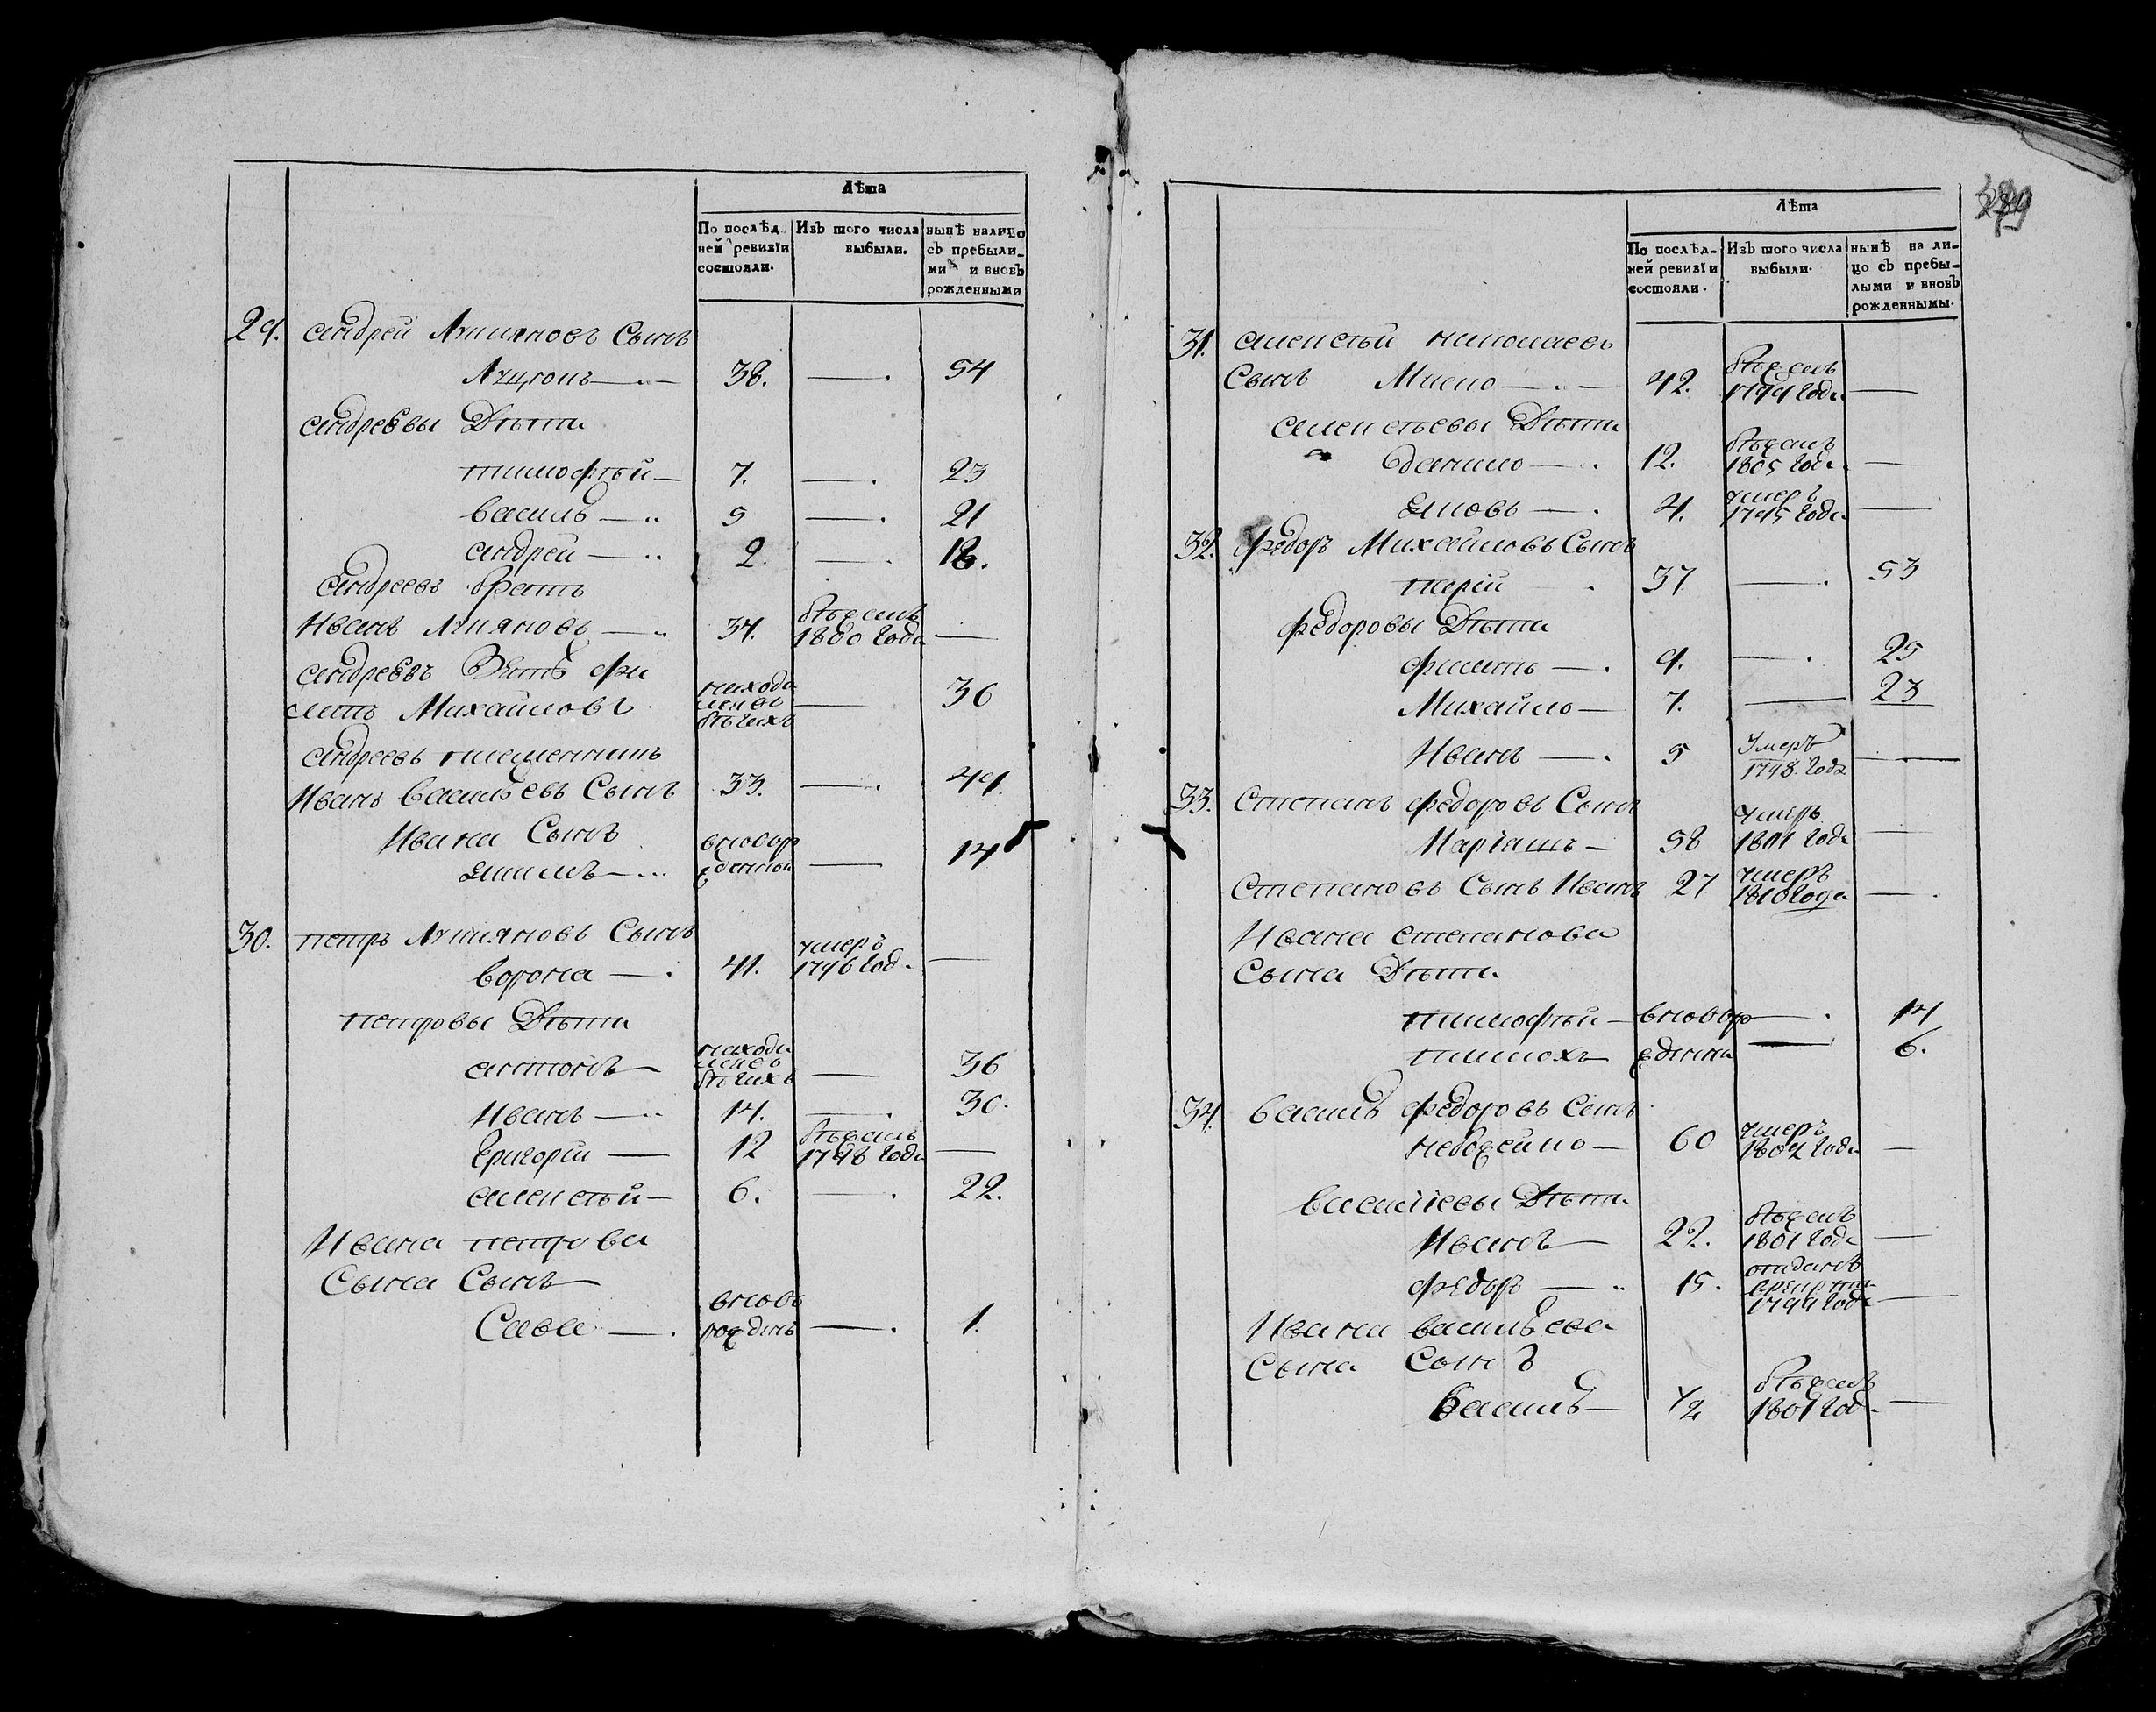 Лѣта
По послѣд-
ней ревизіи
состояли.
Изъ того числа
выбыли.
нынѣ налицо
съ пребыли-
ми и вновь
рожденными
29. андрей Лукіяновъ Сынъ
38. —. 54
андреевы Дѣти
тимофѣй — 7. —. 23
василь — 5 —. 21
андрей — 2. —. 18.
андреевъ братъ
Иванъ Лукіяновъ — 34. бѣжалъ 1800 года —
андреевъ Зять фи
липъ Михайловъ находи лсявъ бѣгахъ — 36
андреевъ племянникъ
Иванъ васильевъ Сынъ 33. —. 49
Ивана Сынъ
якимъ — вновор жденный — 14
30. петръ Лукіяновъ Сынъ
ворона — 41. умеръ 1796 года —
петровы Дѣти
антонъ — находи лсявъ бѣгахъ — 36
Иванъ — 14. —. 30.
Григорій — 12 бѣжалъ 1798 года —
алексѣй — 6. —. 22.
Ивана петрова
Сына Сынъ
Сава —. вновь рожденъ —. 1.
Лѣта
По послѣд-
ней ревизіи
состояли.
Изъ того числа
выбыли.
нынѣ на ли-
цо съ пребы-
лыми и вновь
рожденнымы.
31. алексѣй николаевъ
Сынъ 42. бѣжалъ 1799 года —
алексѣевы Дѣти
данило — 12. бѣжалъ 1805 года —
яковъ — 4. умеръ 1795 года —
32. федоръ Михайловъ Сынъ
37 —. 53
федоровы Дѣти
филипъ — 9. —. 25
Михайло — 7. — 23
Иванъ — 5 Умеръ 1798. года —
33. степанъ федоровъ Сынъ
58 умеръ 1801 года —
степановъ Сынъ Иванъ 27 умеръ 1810 года —
Ивана степанова
Сына Дѣти
тимофѣй — вновор —. 14
ждении — 6.
34. василь федоровъ Сынъ
60 умеръ 1802 года —
василіевы Дѣти
Иванъ — 22. бѣжалъ 1801 года —
федоръ — 15. отданъ врекруты 1799 года —
Ивана васильева
Сына Сынъ
василь — 1/2 бѣжалъ 1801 года —